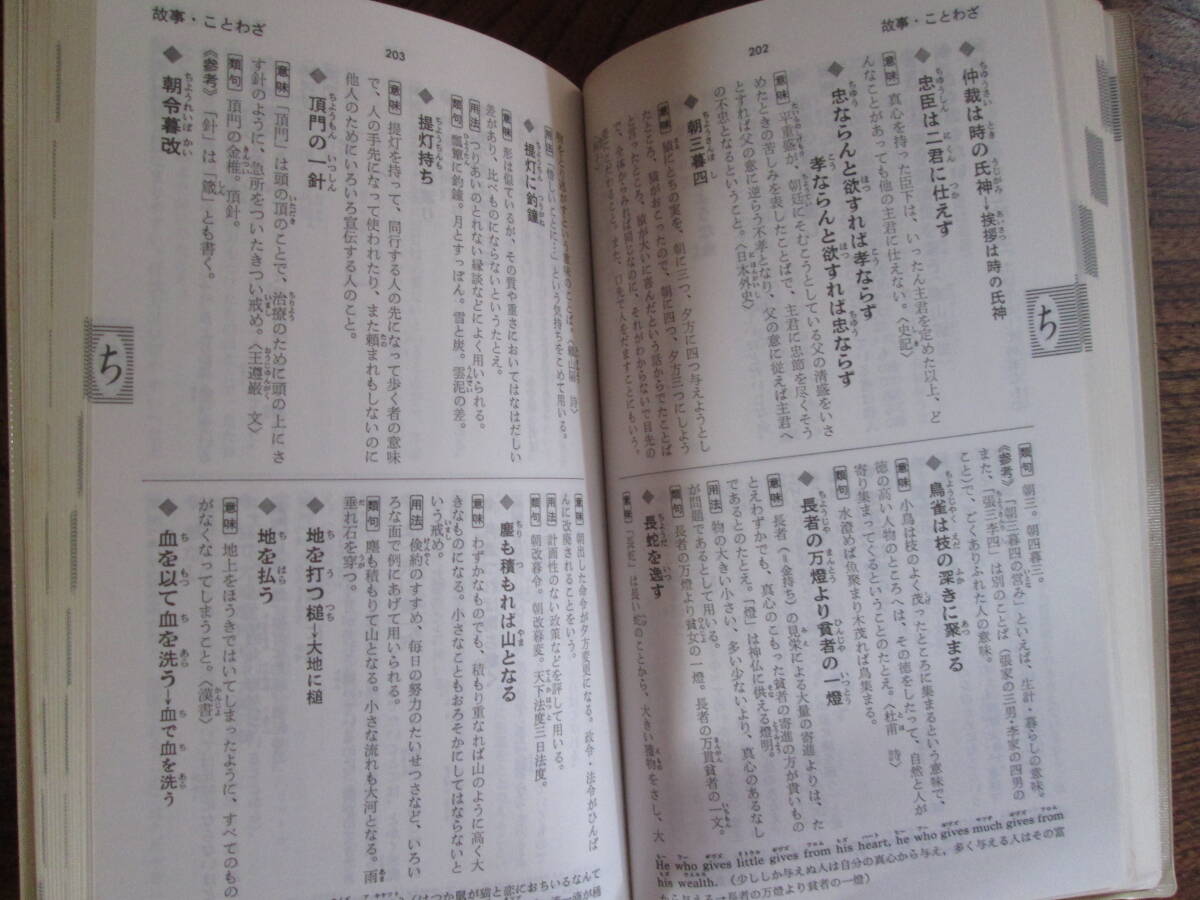 故事・ことわざ
202
ち
◆仲裁は時の氏神→挨拶は時の氏神
◆忠臣は二君に仕えず
意味 真心を持った臣下は、いったん主君を定めた以上、ど
んなことがあっても他の主君に仕えない。〈史記〉
◆忠ならんと欲すれば孝ならず
孝ならんと欲すれば忠ならず
意味 平重盛が、朝廷にそむこうとしている父の清盛をいさ
めたときの苦しみを表したことばで、主君に忠節を尽くそう
とすれば父の意に逆らう不孝となり、父の意に従えば主君へ
の不忠となるということ。〈日本外史〉
◆朝三暮四
意味 猿にとちの実を、朝に三つ、夕方に四つ与えようとし
たところ、猿がおこったので、朝に四つ、夕方三つにしよう
と言ったところ、猿が大いに喜んだという話からでたことば
で、全体からみれば同じなのに、それがわからないで目先の
にこだわること。また、口先で人をだますことにもいう。
類句 朝三。朝四暮三。
《参考》「朝三暮四の営み」といえば、生計・暮らしの意味。
また、「張三李四」は別のことば（張家の三男・李家の四男の
こと）で、どくありふれた人の意味。
◆鳥雀は枝の深きに聚まる
意味 小鳥は枝のよく茂ったところに集まるという意味で、
徳の高い人物のところへは、その徳をしたって、自然と人が
寄り集まってくるということのたとえ。〈杜甫 詩〉
類句 水澄めば魚聚まり木茂れば鳥集まる。
◆長者の万燈より貧者の一燈
意味 長者（＝金持ち）の見栄による大量の寄進よりは、た
とえわずかでも、真心のこもった貧者の寄進の方が貴いもの
であるとのたとえ。「燈」は神仏に供える燈明。
用法 物の大きい小さい、多い少ないより、真心のあるなし
が問題であるとして用いる。
類句 長者の万燈より貧女の一燈。長者の万貫貧者の一文。
◆長蛇を逸す
意味 「長蛇」は長い蛇のことから、大きい獲物をさし、大
He who gives little gives from his heart, he who gives much gives from
his wealth.（少ししか与えぬ人は自分の真心から与え，多く与える人はその富
から与える→長者の万燈より貧者の一燈）
故事・ことわざ
203
ち
用法 「惜しいことに…」という気持ちをこめて用いる。
◆提灯に釣鐘
意味 形は似ているが、その質や重さにおいてはなはだしい
差があり、比べものにならないというたとえ。
用法 つりあいのとれない縁談などによく用いられる。
類句 瓢簞に釣鐘。月とすっぽん。雪と炭。雲泥の差。
◆提灯持ち
意味 提灯を持って、同行する人の先になって歩く者の意味
で、人の手先になって使われたり、また頼まれもしないのに
他人のためにいろいろ宣伝する人のこと。
◆頂門の一針
意味 「頂門」は頭の頂のことで、治療のために頭の上にさ
す針のように、急所をついたきつい戒め。〈王遵巌 文〉
類句 頂門の金椎。頂針。
《参考》「針」は「鍼」とも書く。
◆朝令暮改
意味 朝出した命令が夕方変更になる。政令・法令がひんぱ
んに改廃されることをいう。
用法 計画性のない政策などを評して用いる。
類句 朝改暮令。朝改暮変。天下法度三日法度。
◆塵も積もれば山となる
意味 わずかなものでも、積もり重なれば山のように高く大
きなものになる。小さなこともおろそかにしてはならないと
いう戒め。
用法 倹約のすすめ、毎日の努力のたいせつさなど、いろい
ろな面で例にあげて用いられる。
類句 塵も積もりて山となる。小さな流れも大河となる。雨
垂れ石を穿つ。
◆地を打つ槌→大地に槌
◆地を払う
意味 地上をほうきではいてしまったように、すべてのもの
がなくなってしまうこと。〈漢書〉
◆血を以て血を洗う→血で血を洗う